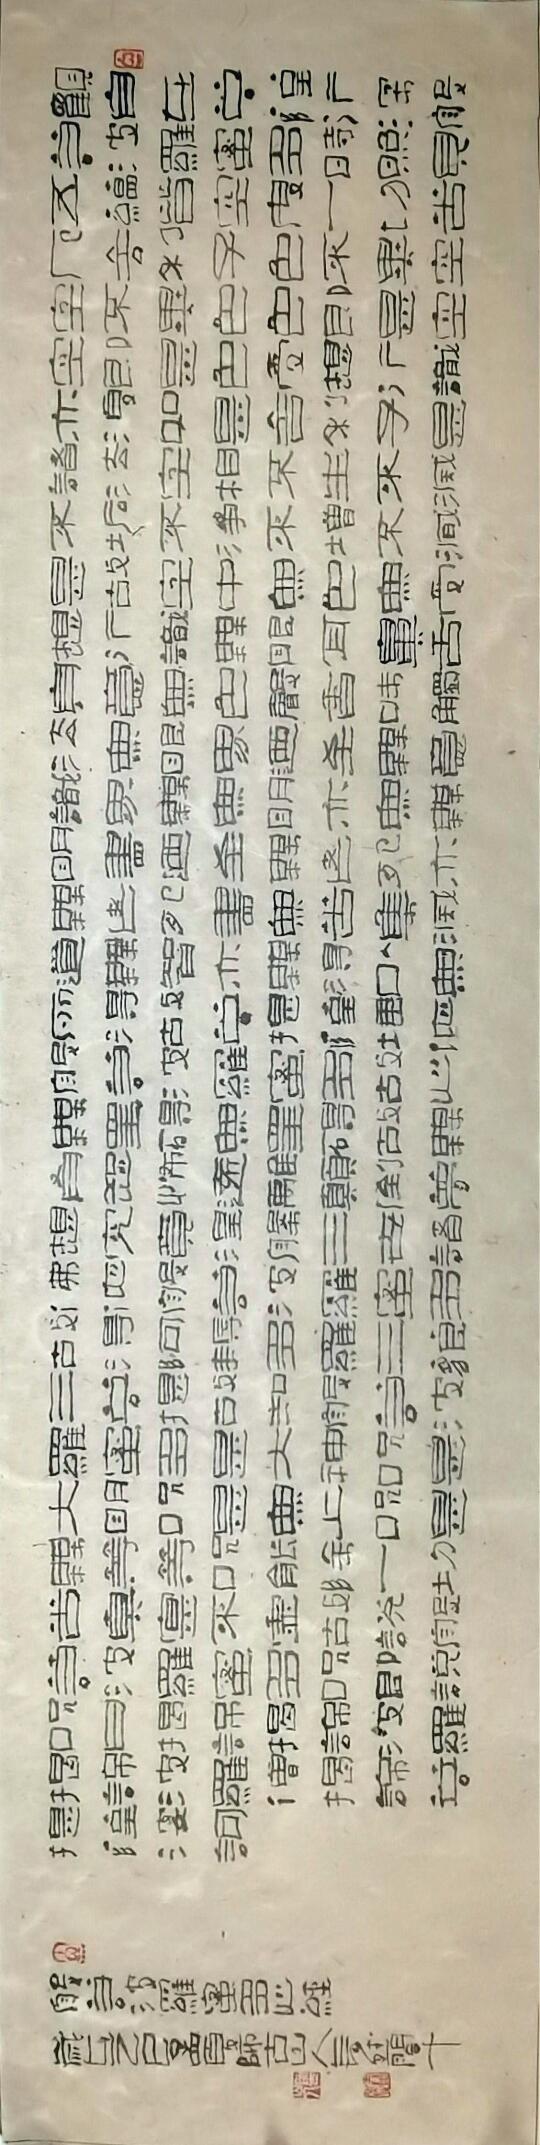 觀自在菩薩行深般
若波羅蜜多時照見
五蘊皆空度一切苦
厄舍利子色不異空
空不異色色即是空
空即是色受想行識
亦復如是舍利子是
諸法空相不生不滅
不垢不淨不增不減
是故空中無色無受
想行識無眼耳鼻舌
身意無色聲香味觸
法無眼界乃至無意
識界無無明亦無無
明盡乃至無老死亦
無老死盡無苦集滅
道無智亦無得以無
所得故菩提薩埵依
般若波羅蜜多故心
無罣礙無罣礙故無
有恐怖遠離顛倒夢
想究竟涅槃三世諸
佛依般若波羅蜜多
故得阿耨多羅三藐
三菩提故知般若波
羅蜜多是大神咒是
大明咒是無上咒是
無等等咒能除一切
苦真實不虛故說般
若波羅蜜多咒即說
咒曰揭諦揭諦波羅
揭諦波羅僧揭諦菩
提薩婆訶
般若波羅蜜多心經
乙巳 師古山人